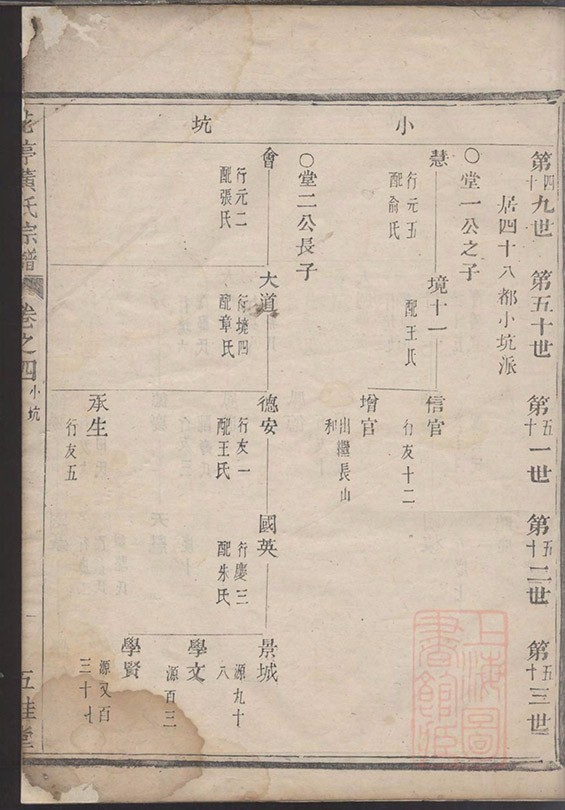 小坑
第四十九世
第五十世
第五十一世
第五十二世
第五十三世
居四十八都小坑派
○堂一公之子
慧
行元五
配俞氏
境十一
配王氏
信官
行友十二
增官
出繼長山
和
○堂二公長子
會
行元二
配張氏
大道
行境四
配章氏
德安
行友一
配王氏
國英
行慶三
配朱氏
景城
源九十
八
學文
源百三
學賢
源又百
三十七
承生
行友五
亭黃氏宗譜
卷之四
小坑
一
五桂堂
上海圖書館藏